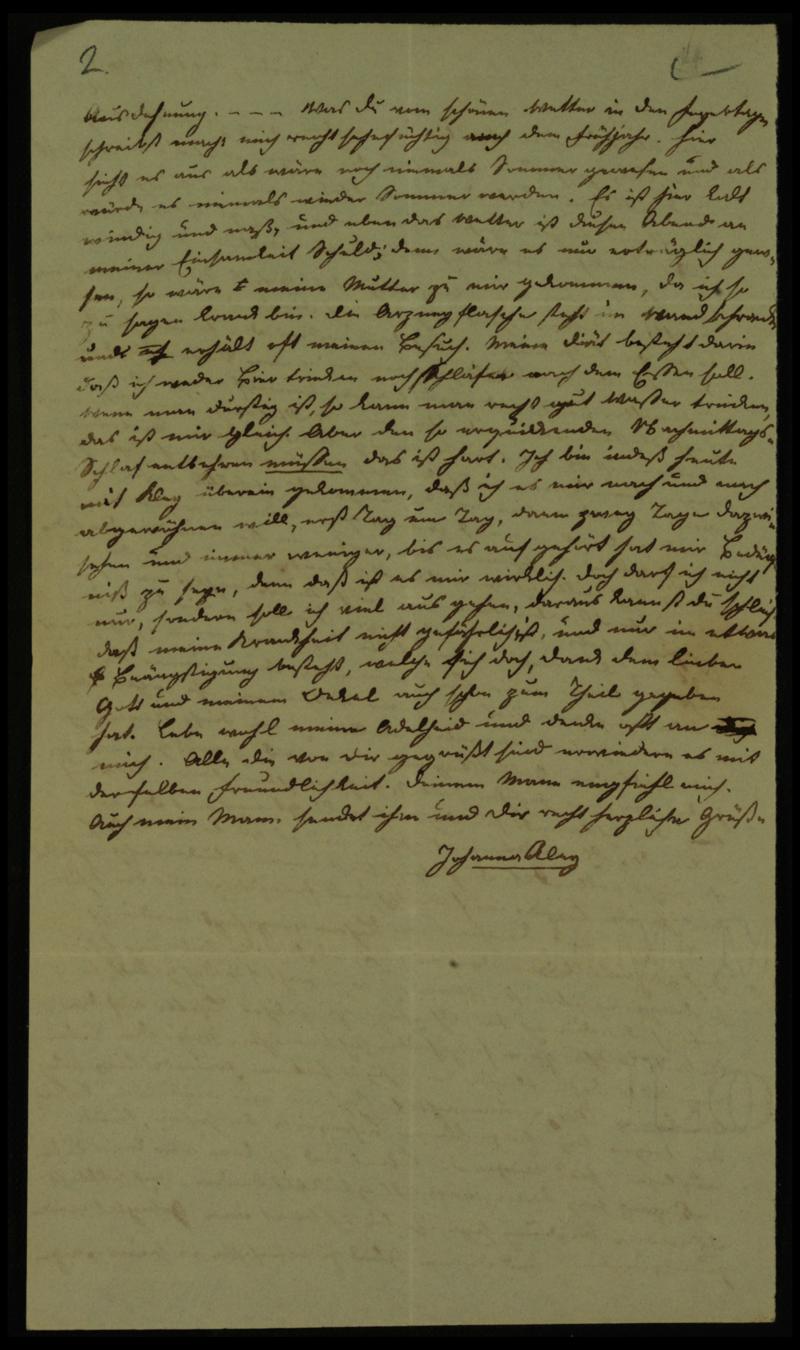 2.
Ausdehnung. - - - Was du vom schönen Wetter in den
schreibst macht mich recht sehnsüchtig nach dem Frühjahr. Hier
sieht es aus als wäre noch niemals Sommer gewesen und als
würde es niemals wieder Sommer werden. Es ist hier kalt
windig und naß, und eben das Wetter ist diesen Abend an
meiner Einsamkeit Schuld; denn wäre es nur erträglich gewe-
sen, so wäre meine Mutter zu mir gekommen, da ich so
zu sagen krank bin. Die Arzneyflasche steht im Wandschrank
und erhält oft meinen Besuch. Meine Diät besteht darin
daß ich weder Bier trinken noch schlafen nach dem Essen soll.
Wenn man durstig ist, so kann man recht gut Wasser trinken,
das ist mir gleich. Aber den so erquickenden Nachmittags-
Schlaf entbehren müssen das ist hart. Ich bin indeß heute
mit Kley überein gekommen, daß ich es mir nach und nach
abgewöhnen will, erst Tag um Tag, dann zwey Tage dazwi-
schen und immer weniger, bis es aufgehört hat mir Bedürf
niß zu seyn, denn daß ist es mir wirklich. Doch darf ich nicht
nur, sondern soll ich viel aus gehen, daraus kannst du
daß meine Krankheit nicht gefährlich ist, und nur in etwas
Beängstigung besteht, welche sich doch, dank dem lieben
Gott und meinem auch schon zum Theil gegeben
hat. Lebe wohl meine Adelheid und denke oft an
mich. Alle die von dir gegrüßt sind erwiedern es mit
derselben Freundlichkeit. Deinem Mann empfiehl mich.
Auch mein Mann sendet ihm und dir recht herzliche Grüße
Johanna Kley